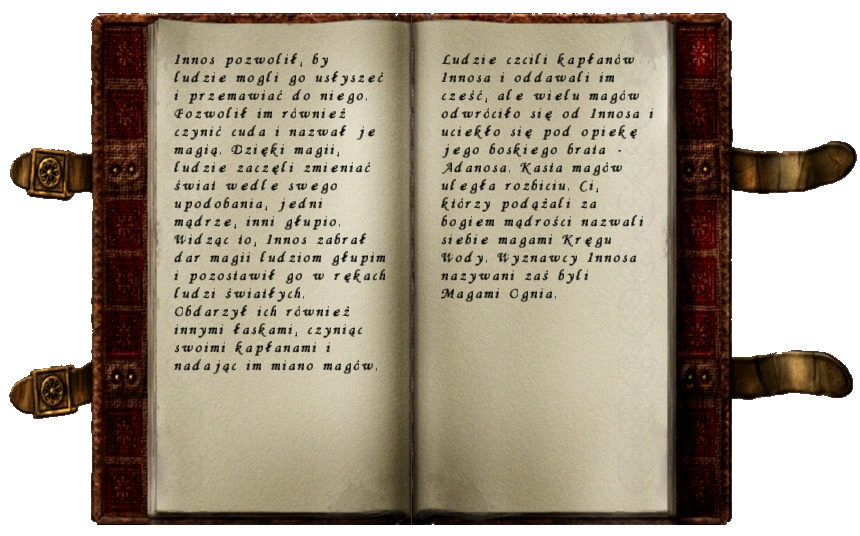 Innos pozwolił, by
ludzie mogli go usłyszeć
i przemawiać do niego.
Pozwolił im również
czynić cuda i nazwał je
magią. Dzięki magii,
ludzie zaczęli zmieniać
świat wedle swego
upodobania, jedni
mądrze, inni głupio.
Widząc to, Innos zabrał
dar magii ludziom głupim
i pozostawił go w rękach
ludzi światłych.
Obdarzył ich również
innymi łaskami, czyniąc
swoimi kapłanami i
nadając im miano magów.
Ludzie czcili kapłanów
Innosa i oddawali im
cześć, ale wielu magów
odwróciło się od Innosa i
uciekło się pod opiekę
jego boskiego brata -
Adanosa. Kasta magów
uległa rozbiciu. Ci,
którzy podążali za
bogiem mądrości nazwali
siebie magami Kręgu
Wody. Wyznawcy Innosa
nazywani zaś byli
Magami Ognia.